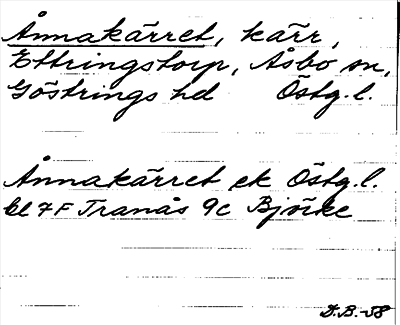 Ånnakärret, kärr,
Ettringstorp, Åsbo sn,
Göstrings hd Östg.l.
Ånnakärret ek Östg.l.
bl 7F Tranås 9c Björke
D.B.-58